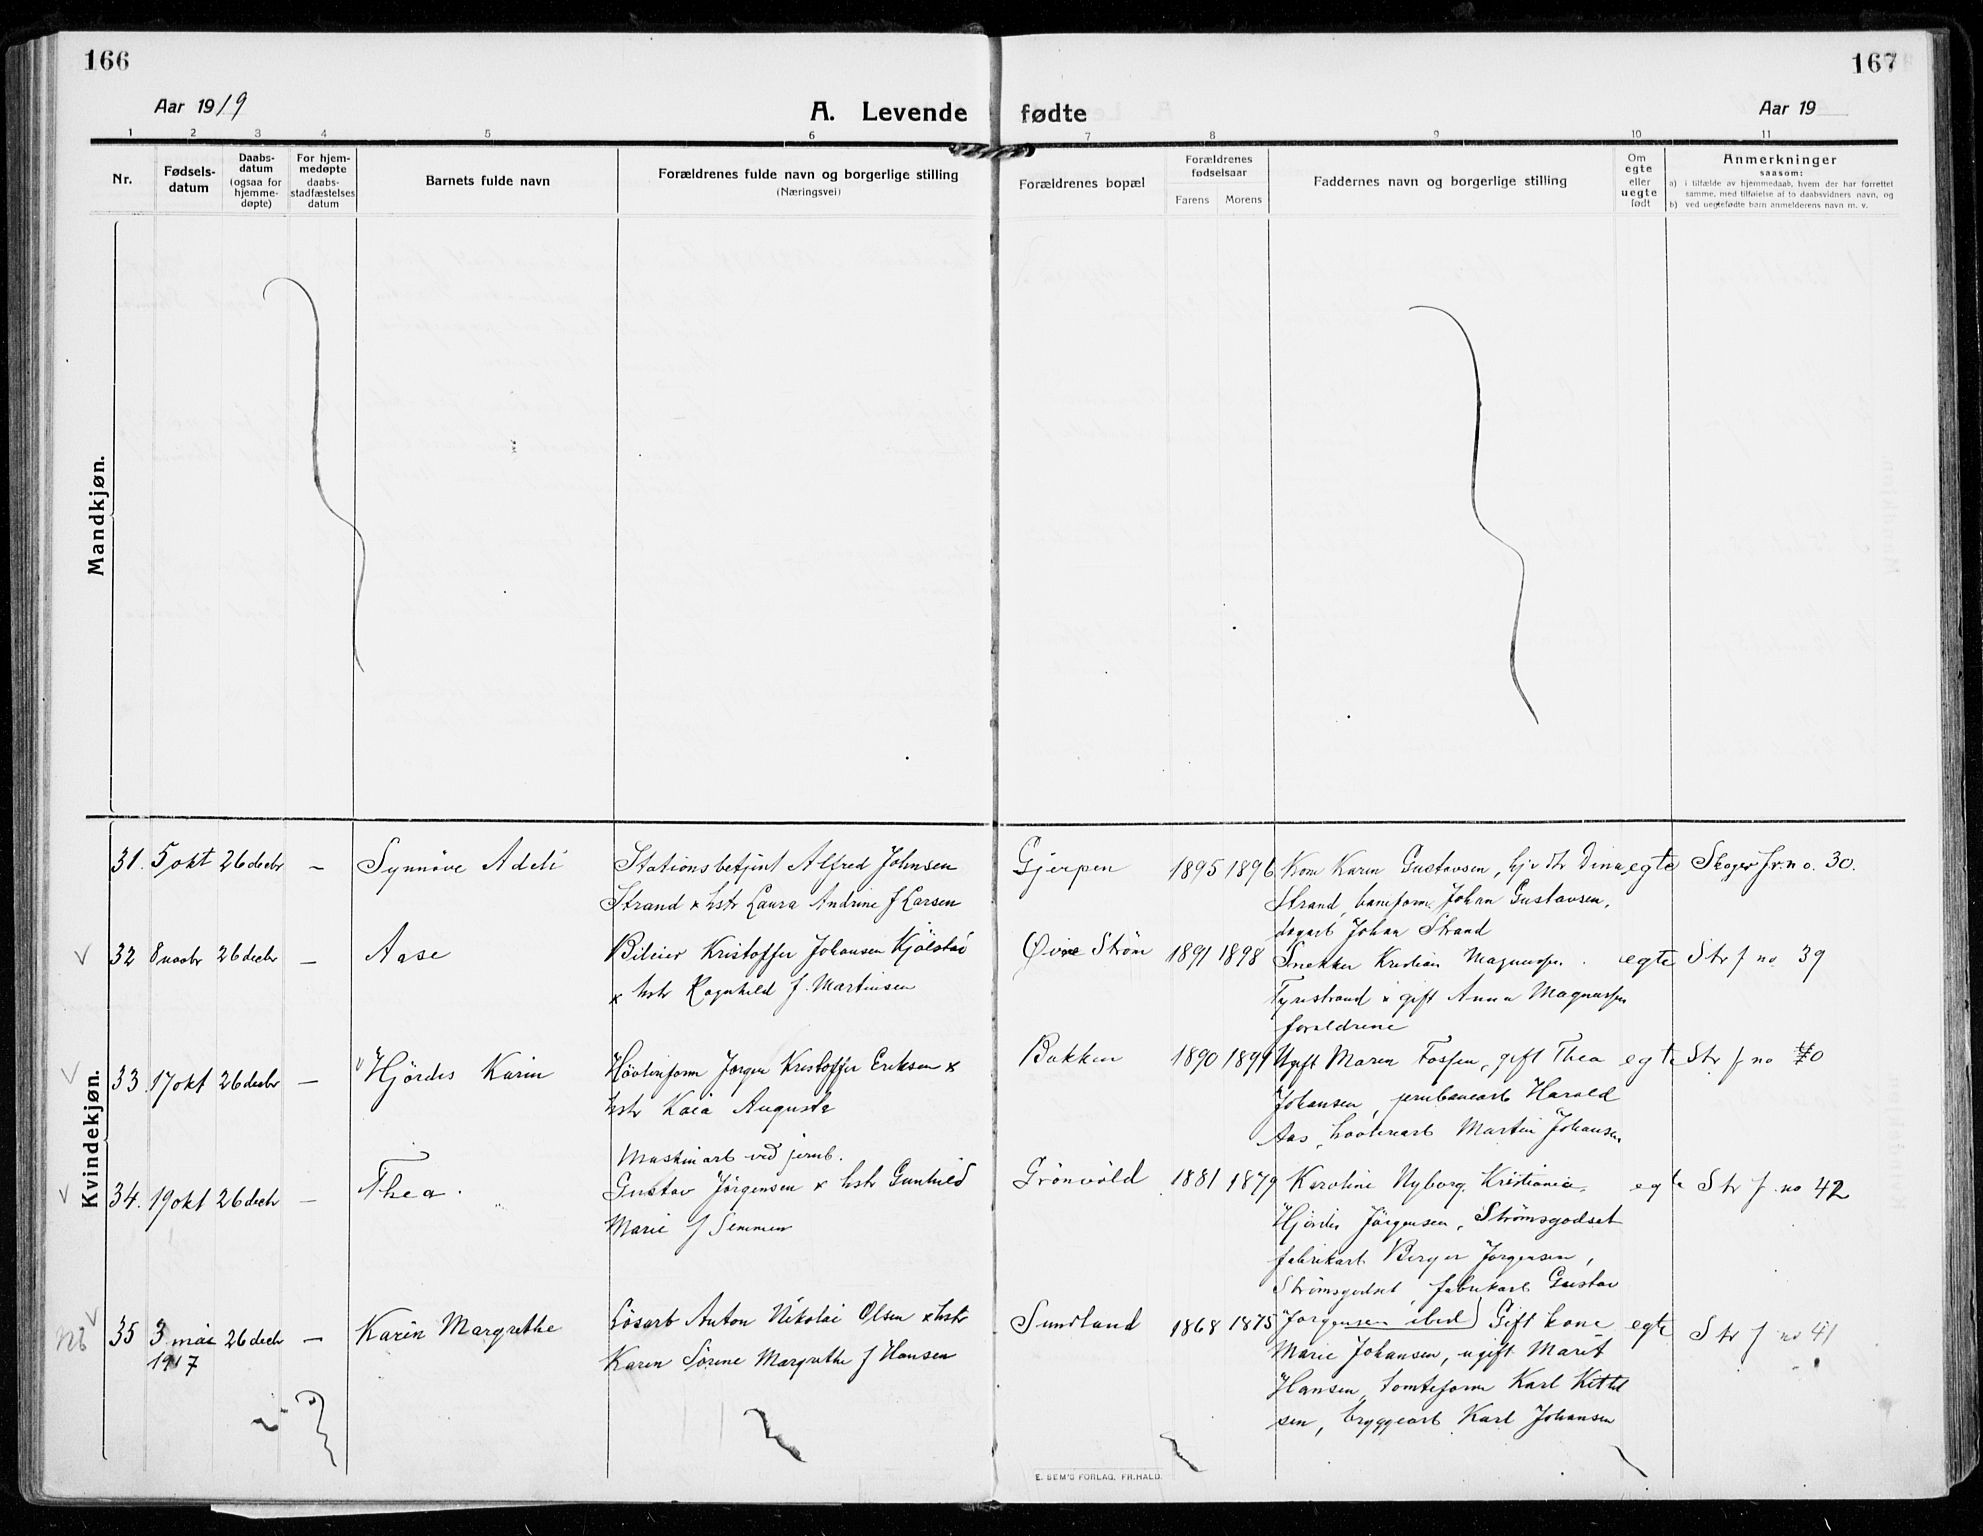 166
167
Aar 1919
A. Levende fødte
Aar 19
1 2 3 4 5 6 7 8 9 10 11
Nr.
Fødsels-
datum
Daabs-
datum
(ogsaa for
hjemme-
døpte)
For hjem-
medøpte
daabs-
stadfæstelses
datum
Barnets fulde navn
Forældrenes fulde navn og borgerlige stilling
(Næringsvei)
Forældrenes bopæl
Forældrenes
fødselsaar
Farens Morens
Faddernes navn og borgerlige stilling
Om
egte
eller
uegte
født
Anmerkninger
saasom:
a) i tilfælde av hjemmedaab, hvem der har forrettet
samme, med tilføielse af to daabsvidners navn, og
b) ved uegtefødte barn anmelderens navn m. v.
Mandkjøn.
Kvindekjøn.
31. 5 okt 26 decbr — Synnöve Adeli
Stationsbetjent Alfred Johnsen
Strand x hstr Laura Andrine f Larsen
Gjerpen 1895 1896
Kone Karen Gustavsen, Dina
Strand, baneform Johan Gustavsen,
dagarb Johan Strand
egte Skoger fr. no. 30.
32 8 novbr 26 decbr — Aase
Bileier Kristoffer Johansen Kjölstad
x hstr Ragnhild f. Martinsen
Øvre Strøm 1891 1898
Snekker Kristian Magnussen.
Tyristrand x gift Anna Magnussen
forældrene
egte Str f no 39
33. 17 okt 26 decbr — Hjördis Karin
Hövleriform Jørgen Kristoffer Eriksen x
hstr Kaia Augusta
Bakken 1890 1894
Ugift Maren Fossen, gift Thea
Johansen, jernbanearb Harald
Aas, hövleriarb Martin Johansen
egte Str f no 40
34. 19 okt 26 decbr — Thea.
Maskinarb ved jernb.
Gustav Jörgensen x hstr Gunhild
Marie f Simmen
Grönvold 1881 1879
Karoline Nyborg, Kristiania,
Hjördis Jörgensen, Strömsgodset
fabrikarb Birger Jörgensen,
Strømsgodset, fabrikarb Gustav
Jorgensen ibid
egte Str f. no 42
NB 35 3 mai 26 decbr — Karin Margrethe
1917
Lösarb Anton Nikolai Olsen x hstr
Karen Sörine Margrethe f Hansen
Sundland 1868 1875
Gift kone
Marie Johansen, ugift Marit
Hansen, tomteform Karl Kittel
sen, bryggearb Karl Johansen
egte Str f no 41
E. SEM'S FORLAG, FR.HALD.